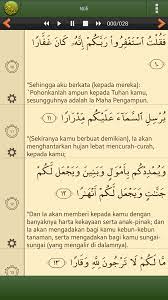 Nuh
000/028
فَقُلْتُ ٱسْتَغْفِرُوا۟ رَبَّكُمْ إِنَّهُۥ كَانَ غَفَّارًا
١٠
"Sehingga aku berkata (kepada mereka):
`Pohonkanlah ampun kepada Tuhan kamu,
sesungguhnya adalah Ia Maha Pengampun.
يُرْسِلِ ٱلسَّمَآءَ عَلَيْكُم مِّدْرَارًا ١١
"(Sekiranya kamu berbuat demikian), Ia akan
menghantarkan hujan lebat mencurah-curah,
kepada kamu;
وَيُمْدِدْكُم بِأَمْوَٰلٍ وَبَنِينَ وَيَجْعَل لَّكُمْ
جَنَّٰتٍ وَيَجْعَل لَّكُمْ أَنْهَٰرًا ١٢
"Dan Ia akan memberi kepada kamu dengan
banyaknya harta kekayaan serta anak-pinak; dan
Ia akan mengadakan bagi kamu kebun-kebun
tanaman, serta mengadakan bagi kamu sungai-
sungai (yang mengalir di dalamnya).
مَّا لَكُمْ لَا تَرْجُونَ لِلَّهِ وَقَارًا ١٣